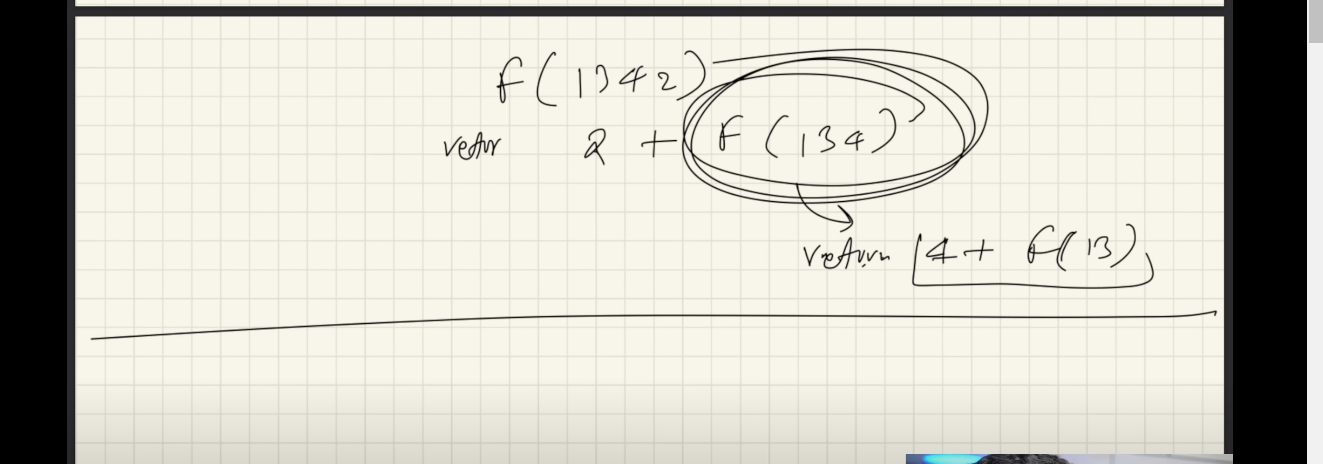 f(1342)
return 2 + f(134)
return 4 + f(13)